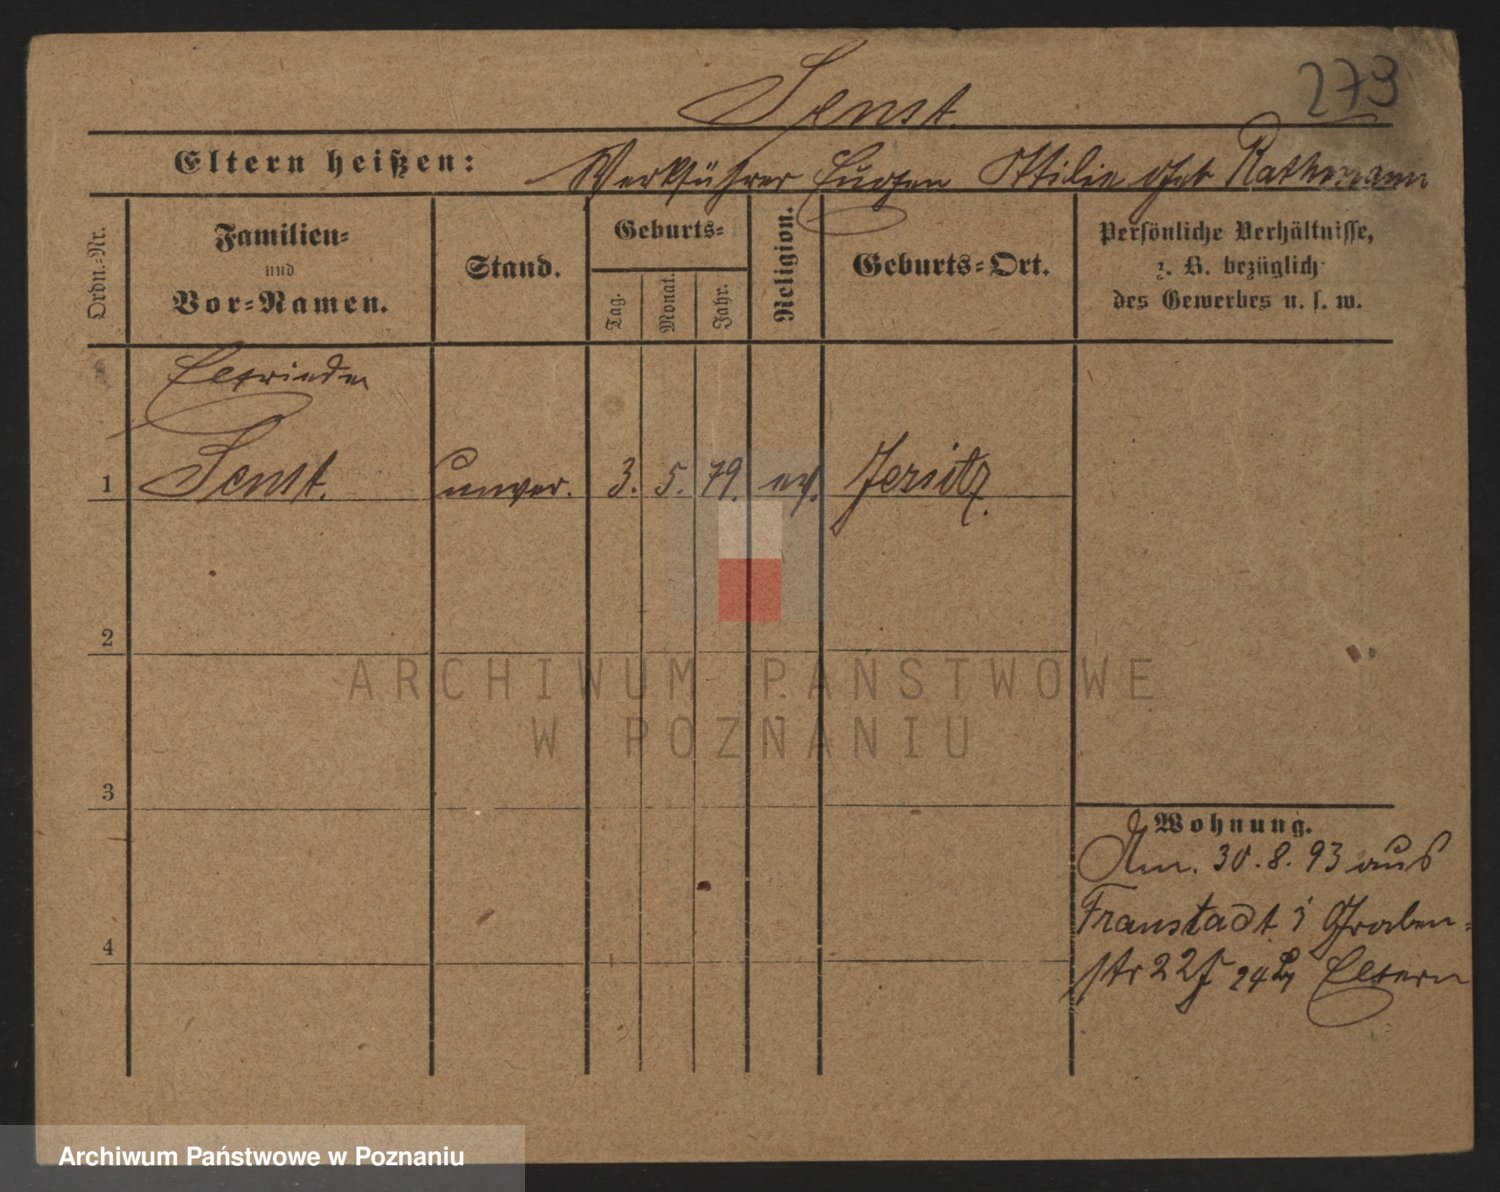 273
Senst.
Eltern heißen:
Werkführer Eugen Ottilie geb Rathmann
Ordn.-Nr.
Familien-
und
Vor-Namen.
Stand.
Geburts-
Tag.
Monat.
Jahr.
Religion.
Geburts-Ort.
Persönliche Verhältnisse,
z. B. bezüglich
des Gewerbes u. s. w.
Elfriede
1 Senst. unver. 3. 5. 79. ev. Jersitz.
2
3
4
Wohnung.
Am. 30.8.93 aus
Fraustadt Graben-
str 22 Eltern
ARCHIWUM PAŃSTWOWE
W POZNANIU
Archiwum Państwowe w Poznaniu